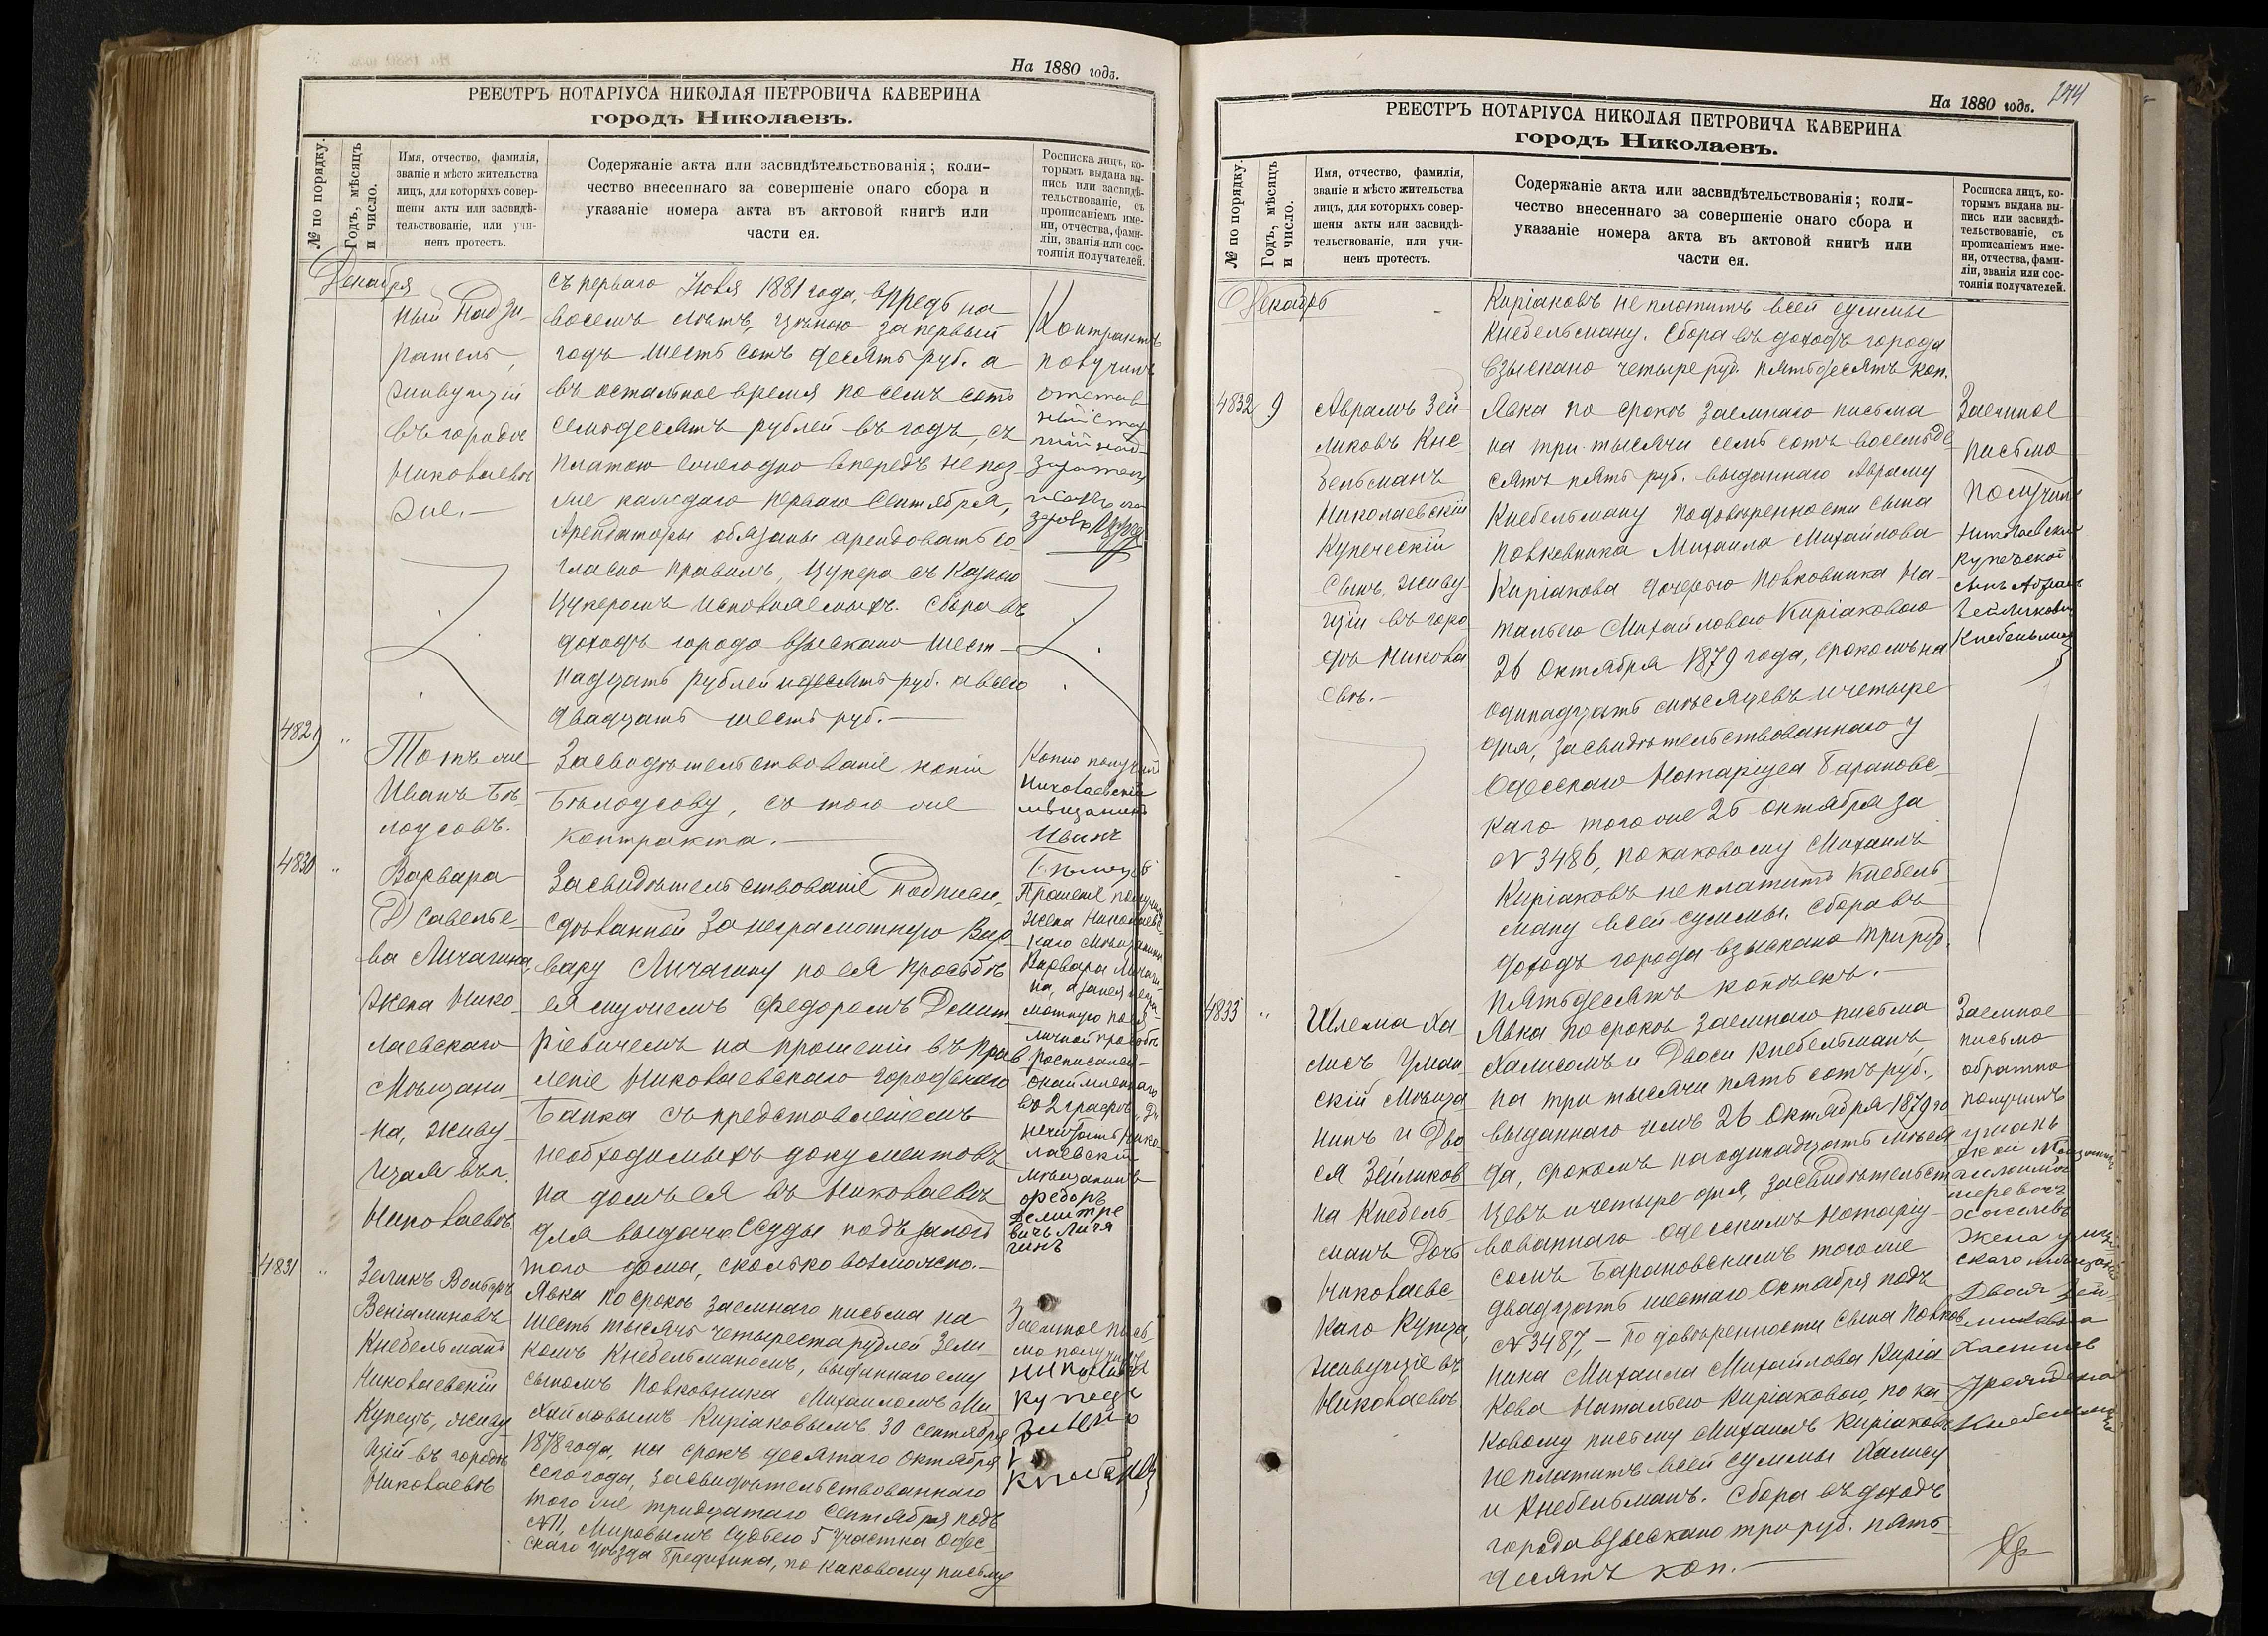 На 1880 годъ.
РЕЕСТРЪ НОТАРІУСА НИКОЛАЯ ПЕТРОВИЧА КАВЕРИНА
городъ Николаевъ.
№ по порядку.
Годъ, мѣсяцъ
и число.
Имя, отчество, фамилія,
званіе и мѣсто жительства
лицъ, для которыхъ совер-
шены акты или засвидѣ-
тельствованіе, или учи-
ненъ протестъ.
Содержаніе акта или засвидѣтельствованія; коли-
чество внесеннаго за совершеніе онаго сбора и
указаніе номера акта въ актовой книгѣ или
части ея.
Росписка лицъ, ко-
торымъ выдана вы-
пись или засвидѣ-
тельствованіе, съ
прописаніемъ име-
ни, отчества, фами-
ліи, званія или сос-
тоянія получателей.
Декабря
ный Надзи-
ратель,
живущій
въ городѣ
Николаевѣ
же.—
съ перваго 1881 года, впредь на
восемь лѣтъ, цѣною за первый
годъ шесть сотъ десять руб. а
въ остальное время по семь сотъ
семьдесятъ рублей въ годъ, съ
платою ежегодно впередъ не поз-
же каждаго перваго Сентября,
Арендаторы обязаны арендовать со-
гласно правилъ,
доходъ города взыскано шест-
надцать рублей и десять руб. а всего
двадцать шесть руб.—
Контрактъ
получилъ
4829 "
Тотъ же
Иванъ Бѣ-
лоусовъ.
Засвидѣтельствованіе копіи
Бѣлоусову, съ того же
контракта.—
Копію получилъ
Николаевскій
мѣщанинъ
Иванъ
4830 "
Варвара
Савелье-
ва Личагина,
жена Нико-
лаевскаго
Мѣщани-
на, живу-
щая въ г.
Николаевѣ
Засвидѣтельствованіе подписи,
сдѣланной за неграмотную Вар-
вару Личагину по ея просьбѣ
ея мужемъ Федоромъ Дмит-
ріевичемъ на прошеніи въ Прав-
леніе Николаевскаго Городскаго
Банка съ представленіемъ
необходимыхъ документовъ
на домъ ея въ Николаевѣ
для выдачи ссуды подъ залогъ
того дома, сколько возможно.—
Прошеніе получила
Жена Николаевс-
каго Мѣщанина
Варвара Личаги-
на, а за нея негра-
мотную по ея
личной просьбѣ
росписался
Мѣщанинъ
Федоръ
4831 "
Зеликъ Вольфъ
Веніаминовъ
Кнебельманъ
Николаевскій
Купецъ, живу-
щій въ городѣ
Николаевѣ
Явка по срокѣ заемнаго письма на
шесть тысячъ четыреста рублей Зели-
комъ Кнебельманомъ, выданнаго ему
сыномъ Полковника Михаиломъ Ми-
хайловымъ Киріаковымъ 30 сентября
1878 года, на срокъ десятаго Октября
сего года, засвидѣтельствованнаго
того же тридцатаго Сентября подъ
№ 11, Мировымъ Судьею 5 участка Одес-
скаго уѣзда по каковому письму
Заемное пись-
мо получилъ
купецъ
На 1880 годъ. 244
РЕЕСТРЪ НОТАРІУСА НИКОЛАЯ ПЕТРОВИЧА КАВЕРИНА
городъ Николаевъ.
№ по порядку.
Годъ, мѣсяцъ
и число.
Имя, отчество, фамилія,
званіе и мѣсто жительства
лицъ, для которыхъ совер-
шены акты или засвидѣ-
тельствованіе, или учи-
ненъ протестъ.
Содержаніе акта или засвидѣтельствованія; коли-
чество внесеннаго за совершеніе онаго сбора и
указаніе номера акта въ актовой книгѣ или
части ея.
Росписка лицъ, ко-
торымъ выдана вы-
пись или засвидѣ-
тельствованіе, съ
прописаніемъ име-
ни, отчества, фами-
ліи, званія или сос-
тоянія получателей.
Декабрь
Киріаковъ не платитъ всей суммы
Кнебельману. Сбора въ доходъ города
взыскано четыре руб. пятьдесятъ коп.
4832 9
Аврамъ Зей-
ликовъ Кне-
бельманъ
Николаевскій
Купеческій
Сынъ, живу-
щій въ горо-
дѣ Никола-
евѣ.—
Явка по срокѣ заемнаго письма
на три тысячи семь сотъ восемьде-
сятъ пять руб. выданнаго Авраму
Кнебельману по довѣренности сына
полковника Михаила Михайлова
Киріакова дочерью полковника На-
тальею Михайловою Киріаковою
26 Октября 1879 года, срокомъ на
одинадцать мѣсяцевъ и четыре
дня, засвидѣтельствованнаго у
Одесскаго Нотаріуса Барановс-
каго того же 26 октября за
№ 3486, по каковому Михаилъ
Киріаковъ не платитъ Кнебель-
ману всей суммы. Сбора въ
доходъ города взыскано три руб.
пятьдесятъ копѣекъ.—
Заемное
письмо
получилъ
Николаевскій
купеческой
сынъ Абрамъ
Зейликовъ
Кнебельманъ
4833 "
Шлема Ха-
лисъ Уман-
скій Мѣща-
нинъ и Дво-
ся Зейликов-
на Кнебель-
манъ Дочь
Николаевс-
каго Купца,
живущіе въ
Николаевѣ
Явка по срокѣ заемнаго письма
Халисомъ и Двоси Кнебельманъ,
на три тысячи пять сотъ руб.,
выданнаго имъ 26 Октября 1879 го-
да, срокомъ на одинадцать мѣся-
цевъ и четыре дня, засвидѣтельст-
вованнаго Одесскимъ Нотаріу-
сомъ Барановскимъ того же
двадцать шестаго Октября подъ
№ 3487,— По довѣренности сына Полков-
ника Михаила Михайлова Киріа-
кова Натальею Киріаковою, по ка-
ковому письму Михаилъ Киріаковъ
не платитъ всей суммы Халису
и Кнебельманъ. Сбора въ доходъ
города взыскано три руб. пять-
десятъ коп.—
Заемное
письмо
обратно
получилъ
Жена
Двося Зей-